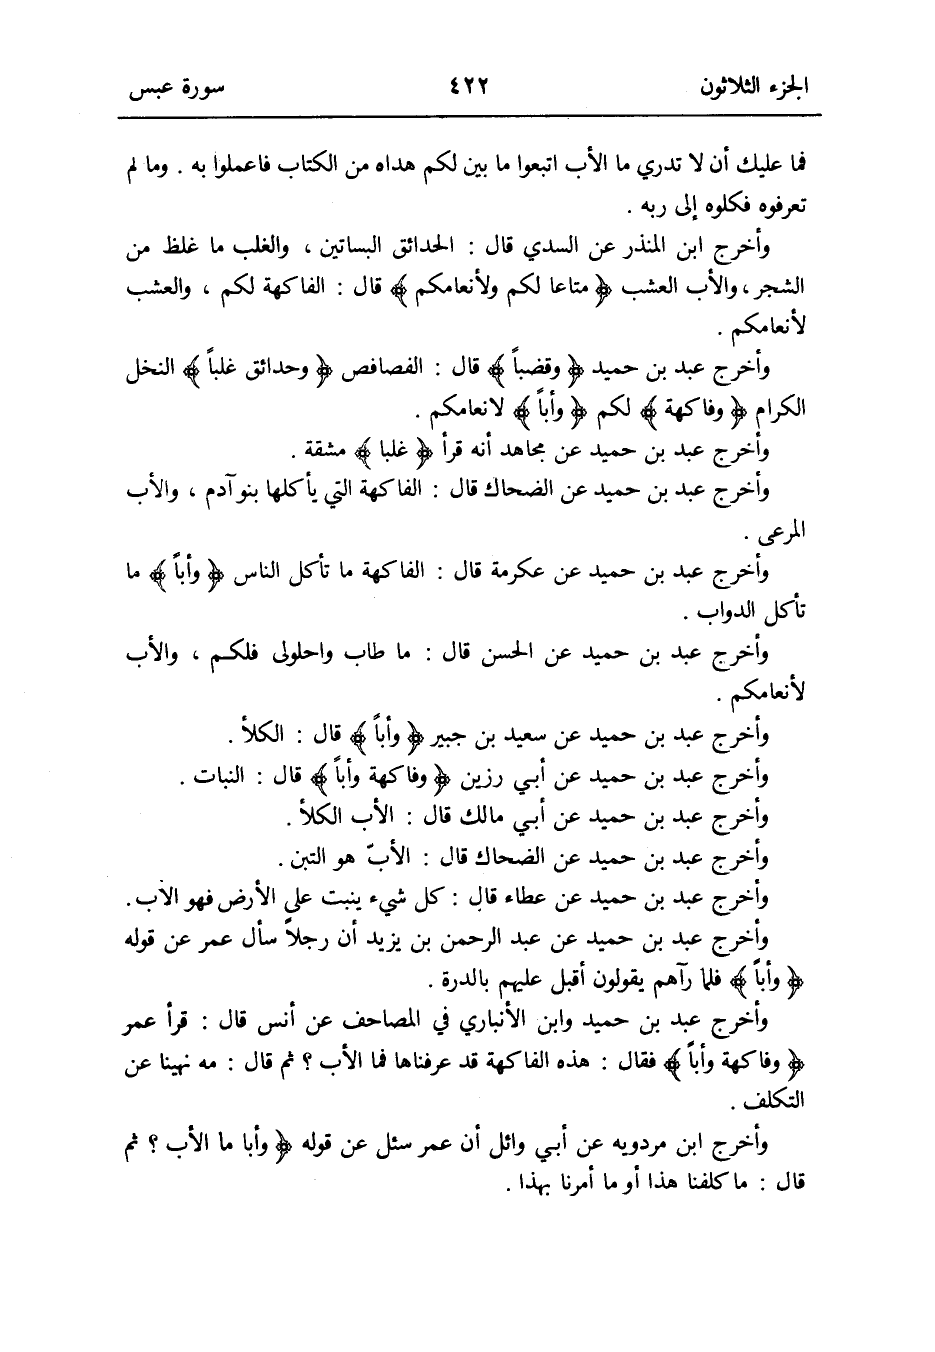 الجزء الثلاثون ٤٢٢ سورة عبس
فما عليك أن لا تدري ما الأب اتبعوا ما بين لكم هداه من الكتاب فاعملوا به . وما لم
تعرفوه فكلوه إلى ربه .
وأخرج ابن المنذر عن السدي قال : الحدائق البساتين ، والغلب ما غلظ من
الشجر ، والأب العشب ﴿ متاعا لكم ولأنعامكم ﴾ قال : الفاكهة لكم ، والعشب
لأنعامكم .
وأخرج عبد بن حميد ﴿ وقضباً ﴾ قال : الفصافص ﴿ وحدائق غلباً ﴾ النخل
الكرام ﴿ وفاكهة ﴾ لكم ﴿ وأباً ﴾ لانعامكم .
وأخرج عبد بن حميد عن مجاهد أنه قرأ ﴿ غلبا ﴾ مشقة .
وأخرج عبد بن حميد عن الضحاك قال : الفاكهة التي يأكلها بنو آدم ، والأب
المرعى .
وأخرج عبد بن حميد عن عكرمة قال : الفاكهة ما تأكل الناس ﴿ وأباً ﴾ ما
تأكل الدواب .
وأخرج عبد بن حميد عن الحسن قال : ما طاب واحلولى فلكم ، والأب
لأنعامكم .
وأخرج عبد بن حميد عن سعيد بن جبير ﴿ وأباً ﴾ قال : الكلأ .
وأخرج عبد بن حميد عن أبي رزين ﴿ وفاكهة وأباً ﴾ قال : النبات .
وأخرج عبد بن حميد عن أبي مالك قال : الأب الكلأ .
وأخرج عبد بن حميد عن الضحاك قال : الأبّ هو التبن .
وأخرج عبد بن حميد عن عطاء قال : كل شيء ينبت على الأرض فهو الأب .
وأخرج عبد بن حميد عن عبد الرحمن بن يزيد أن رجلاً سأل عمر عن قوله
﴿ وأباً ﴾ فلما رآهم يقولون أقبل عليهم بالدرة .
وأخرج عبد بن حميد وابن الأنباري في المصاحف عن أنس قال : قرأ عمر
﴿ وفاكهة وأباً ﴾ فقال : هذه الفاكهة قد عرفناها فما الأب ؟ ثم قال : مه نهينا عن
التكلف .
وأخرج ابن مردويه عن أبي وائل أن عمر سئل عن قوله ﴿ وأبا ما الأب ؟ ثم
قال : ما كلفنا هذا أو ما أمرنا بهذا .